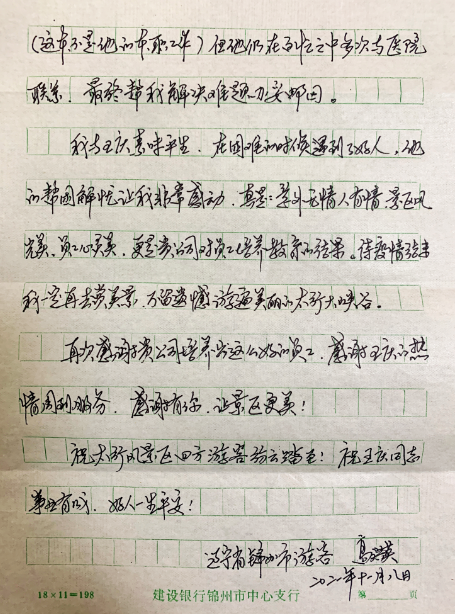 （这本不是他的本职工作）但他仍在百忙之中多次与医院
联系，最终帮我解决难题办妥邮回。
我与王庆素昧平生，在困难的时候遇到了好人，他
的帮困解忧让我非常感动，真是：意外无情人有情，景区风
光美，员工心灵美，更是贵公司对员工培养教育的结果。待疫情结束
我一定再去赏美景，不留遗憾游遍美丽的太行大峡谷。
再次感谢贵公司培养出这么好的员工，感谢王庆的热
情周到服务，感谢有你，让景区更美！
祝太行风景区四方游客纷至踏至！祝王庆同志
事业有成，好人一生平安！
辽宁省锦州市游客 高
二〇二一年十一月八日
18×11=198 建设银行锦州市中心支行 第 页